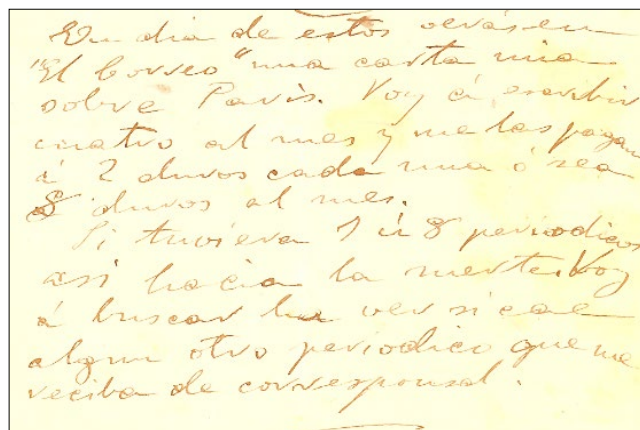 Un dia de estos verás en
"El Correo" una carta mia
sobre Paris. Voy á escribir
cuatro al mes y me las pagan
á 2 duros cada una ó sea
8 duros al mes.
Si tuviera 7 ú 8 periodicos
asi hacia la suerte. Voy
á buscar á ver si cae
algun otro periodico que me
reciba de corresponsal.